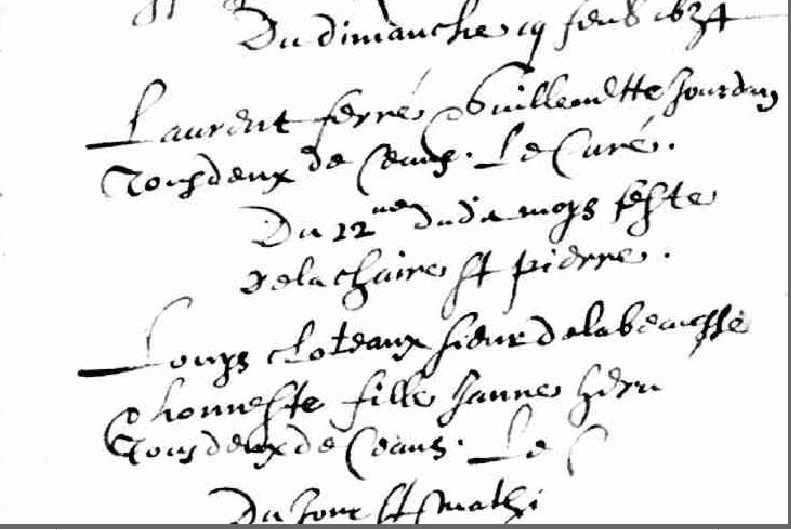 Du dimanche 19 feub 1634
Laurent ferré & Guillemette Jourdan
Tous deux de Ceans. Le Curé.
Du 22me dud. moys feste
de la chaire St pierre.
Louys cloteaux sieur de la beausse
& honneste fille Janne
Tous deux de Ceans. Le C
Du Jour St mathi